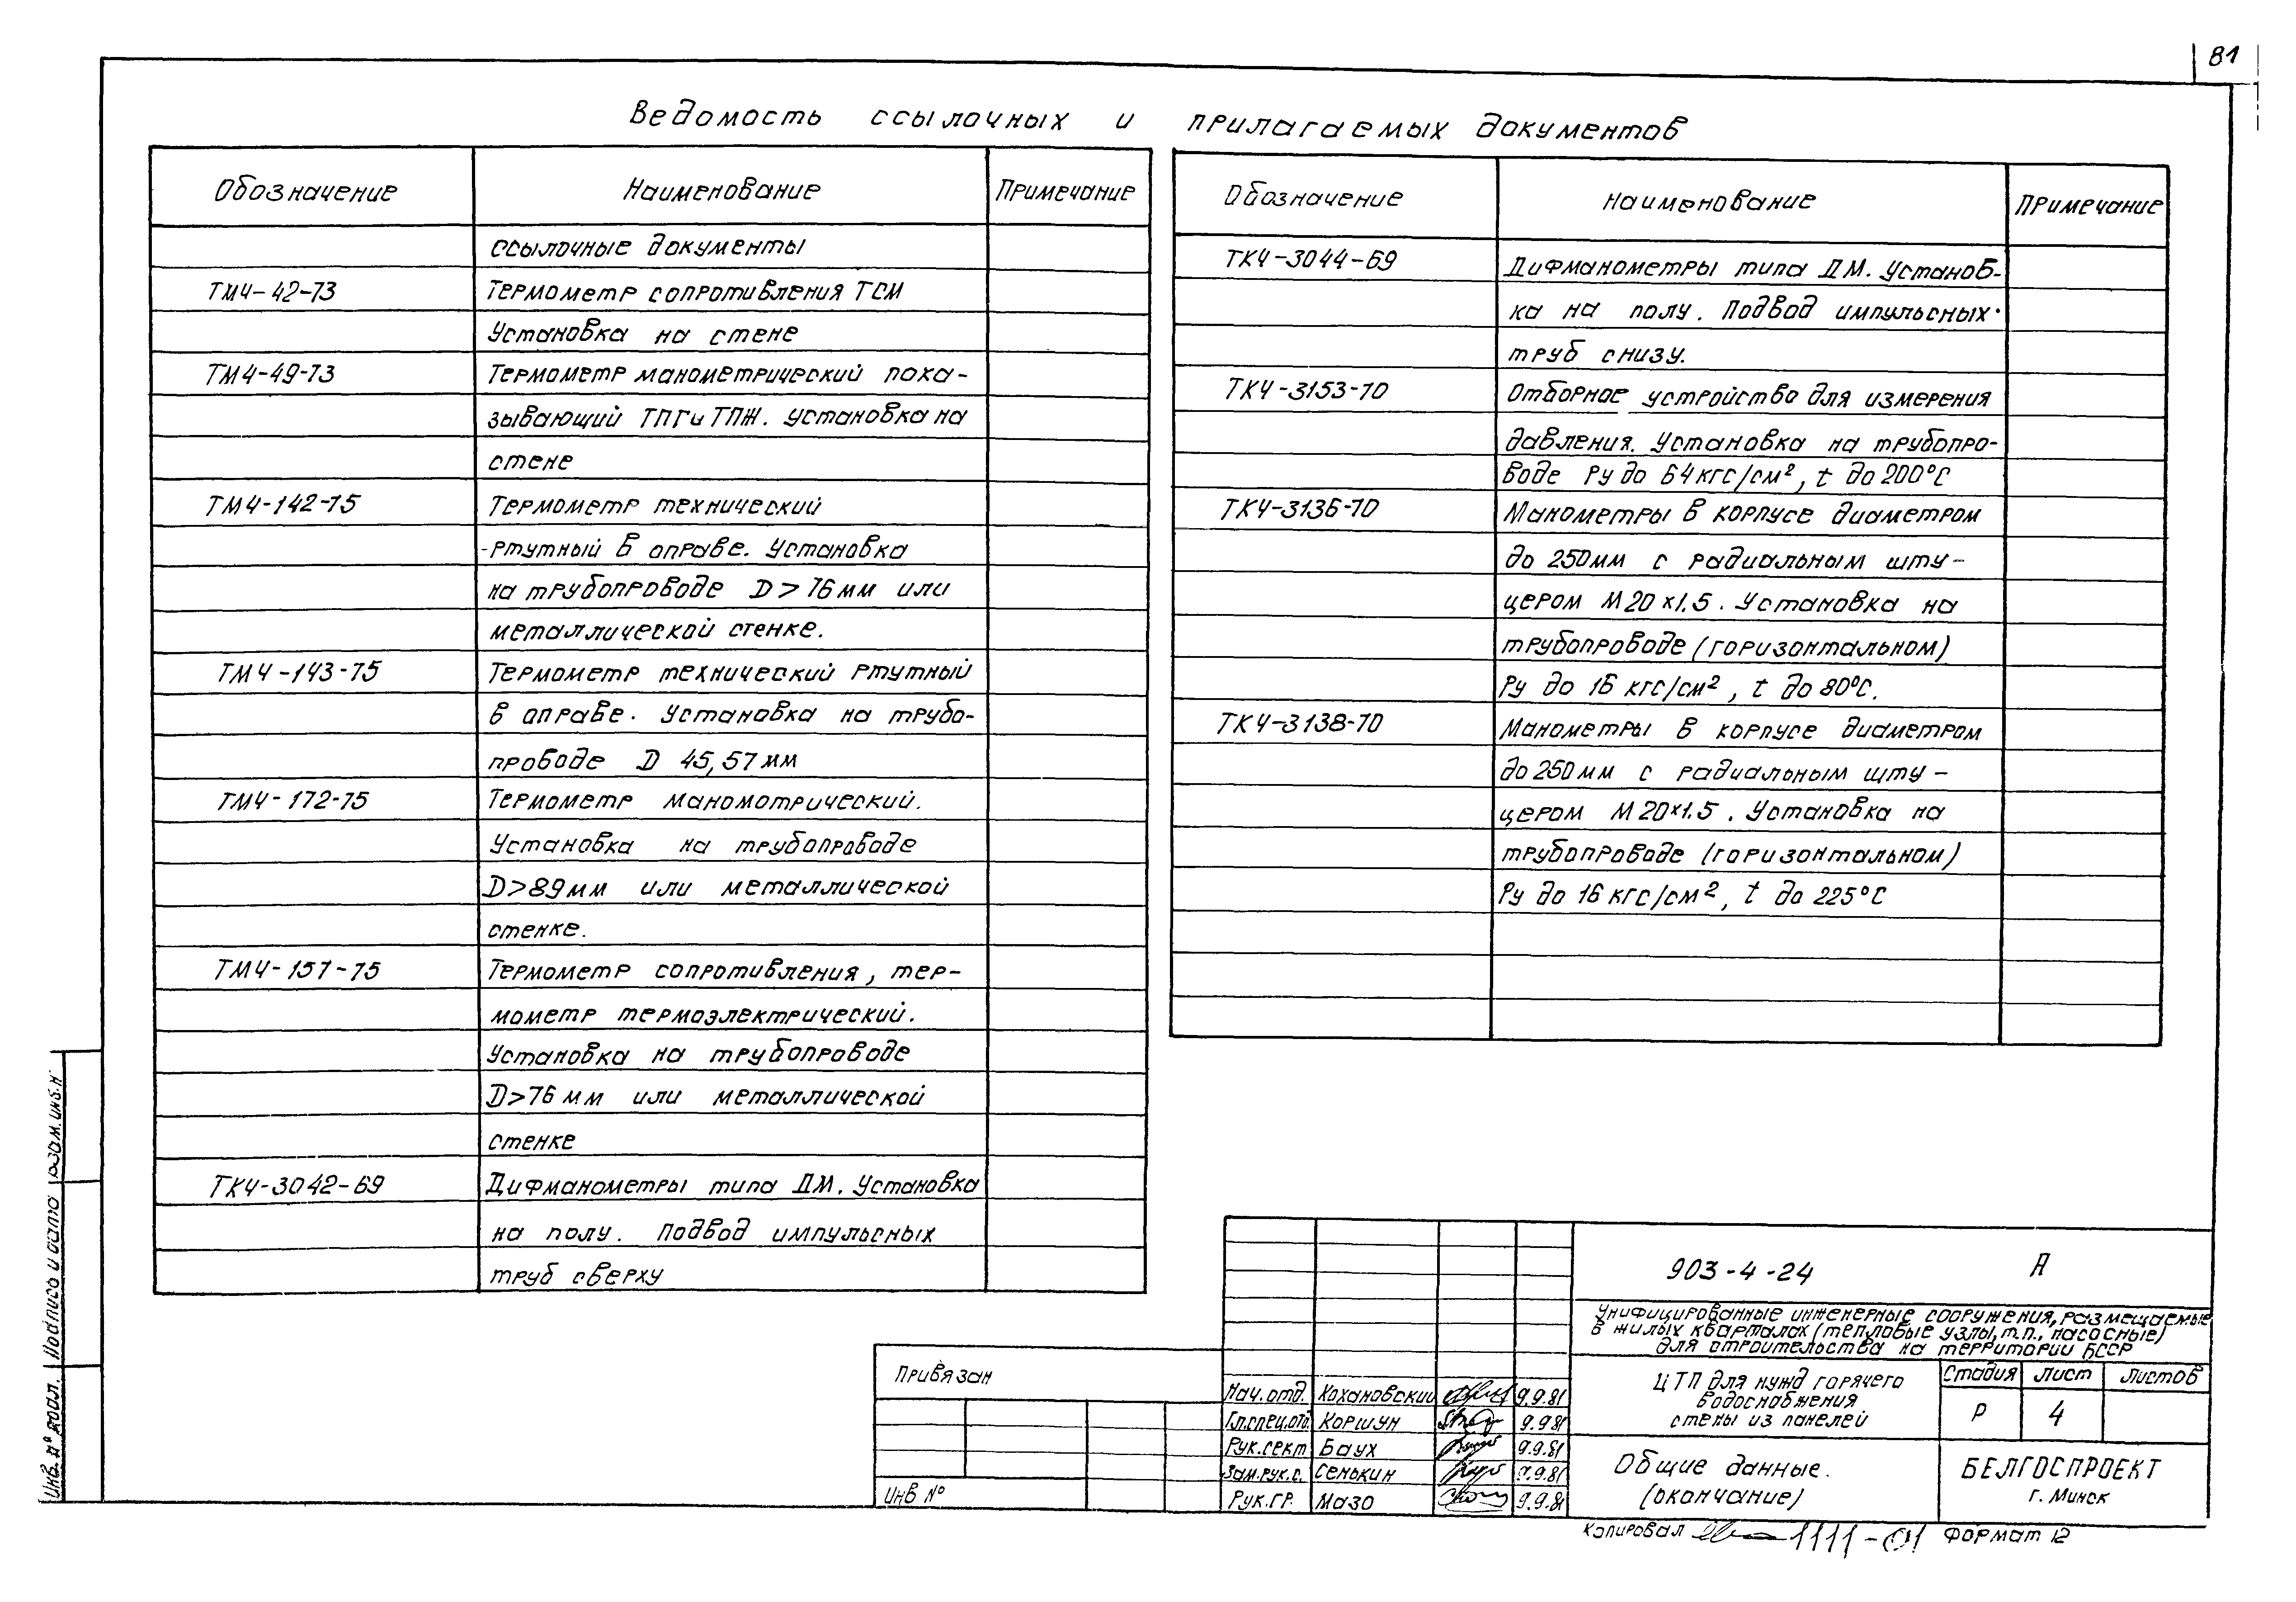 81
Ведомость ссылочных и прилагаемых документов
Обозначение Наименование Примечание
ссылочные документы
ТМ4-42-73 Термометр сопротивления ТСМ
Установка на стене
ТМ4-49-73 Термометр манометрический пока-
зывающий ТПГ и ТПЖ. Установка на
стене
ТМ4-142-75 Термометр технический
-ртутный в оправе. Установка
на трубопроводе D > 76 мм или
металлической стенке.
ТМ4-143-75 Термометр технический ртутный
в оправе. Установка на трубо-
проводе D 45, 57 мм
ТМ4-172-75 Термометр маномотрический.
Установка на трубопроводе
D > 89 мм или металлической
стенке.
ТМ4-157-75 Термометр сопротивления, тер-
мометр термоэлектрический.
Установка на трубопроводе
D > 76 мм или металлической
стенке
ТК4-3042-69 Дифманометры типа ДМ. Установка
на полу. Подвод импульсных
труб сверху
Обозначение Наименование Примечание
ТК4-3044-69 Дифманометры типа ДМ. Установ-
ка на полу. Подвод импульсных
труб снизу.
ТК4-3153-70 Отборное устройство для измерения
давления. Установка на трубопро-
воде Ру до 64 кгс/см², t до 200°С
ТК4-3136-70 Манометры в корпусе диаметром
до 250мм с радиальным шту-
цером М20×1.5. Установка на
трубопроводе (горизонтальном)
Ру до 16 кгс/см², t до 80°С.
ТК4-3138-70 Манометры в корпусе диаметром
до 250мм с радиальным шту-
цером М20×1.5. Установка на
трубопроводе (горизонтальном)
Ру до 16 кгс/см², t до 225°С
903-4-24 А
Унифицированные инженерные сооружения, размещаемые
в жилых кварталах (тепловые узлы, т.п., насосные)
для строительства на территории БССР
ЦТП для нужд горячего
водоснабжения
стены из панелей
Стадия Лист Листов
Р 4
Общие данные.
(окончание)
БЕЛГОСПРОЕКТ
г. Минск
Привязан
Инв №
Нач. отд. Кохановский 9.9.81
Гл.спец.отд. Коршун 9.9.81
Рук. сект Баух 9.9.81
Зам.рук.с. Сенькин 9.9.81
Рук. гр. Мазо 9.9.81
Копировал 1111-01 Формат 12
Инв. № подл. Подпись и дата Взам. инв. №